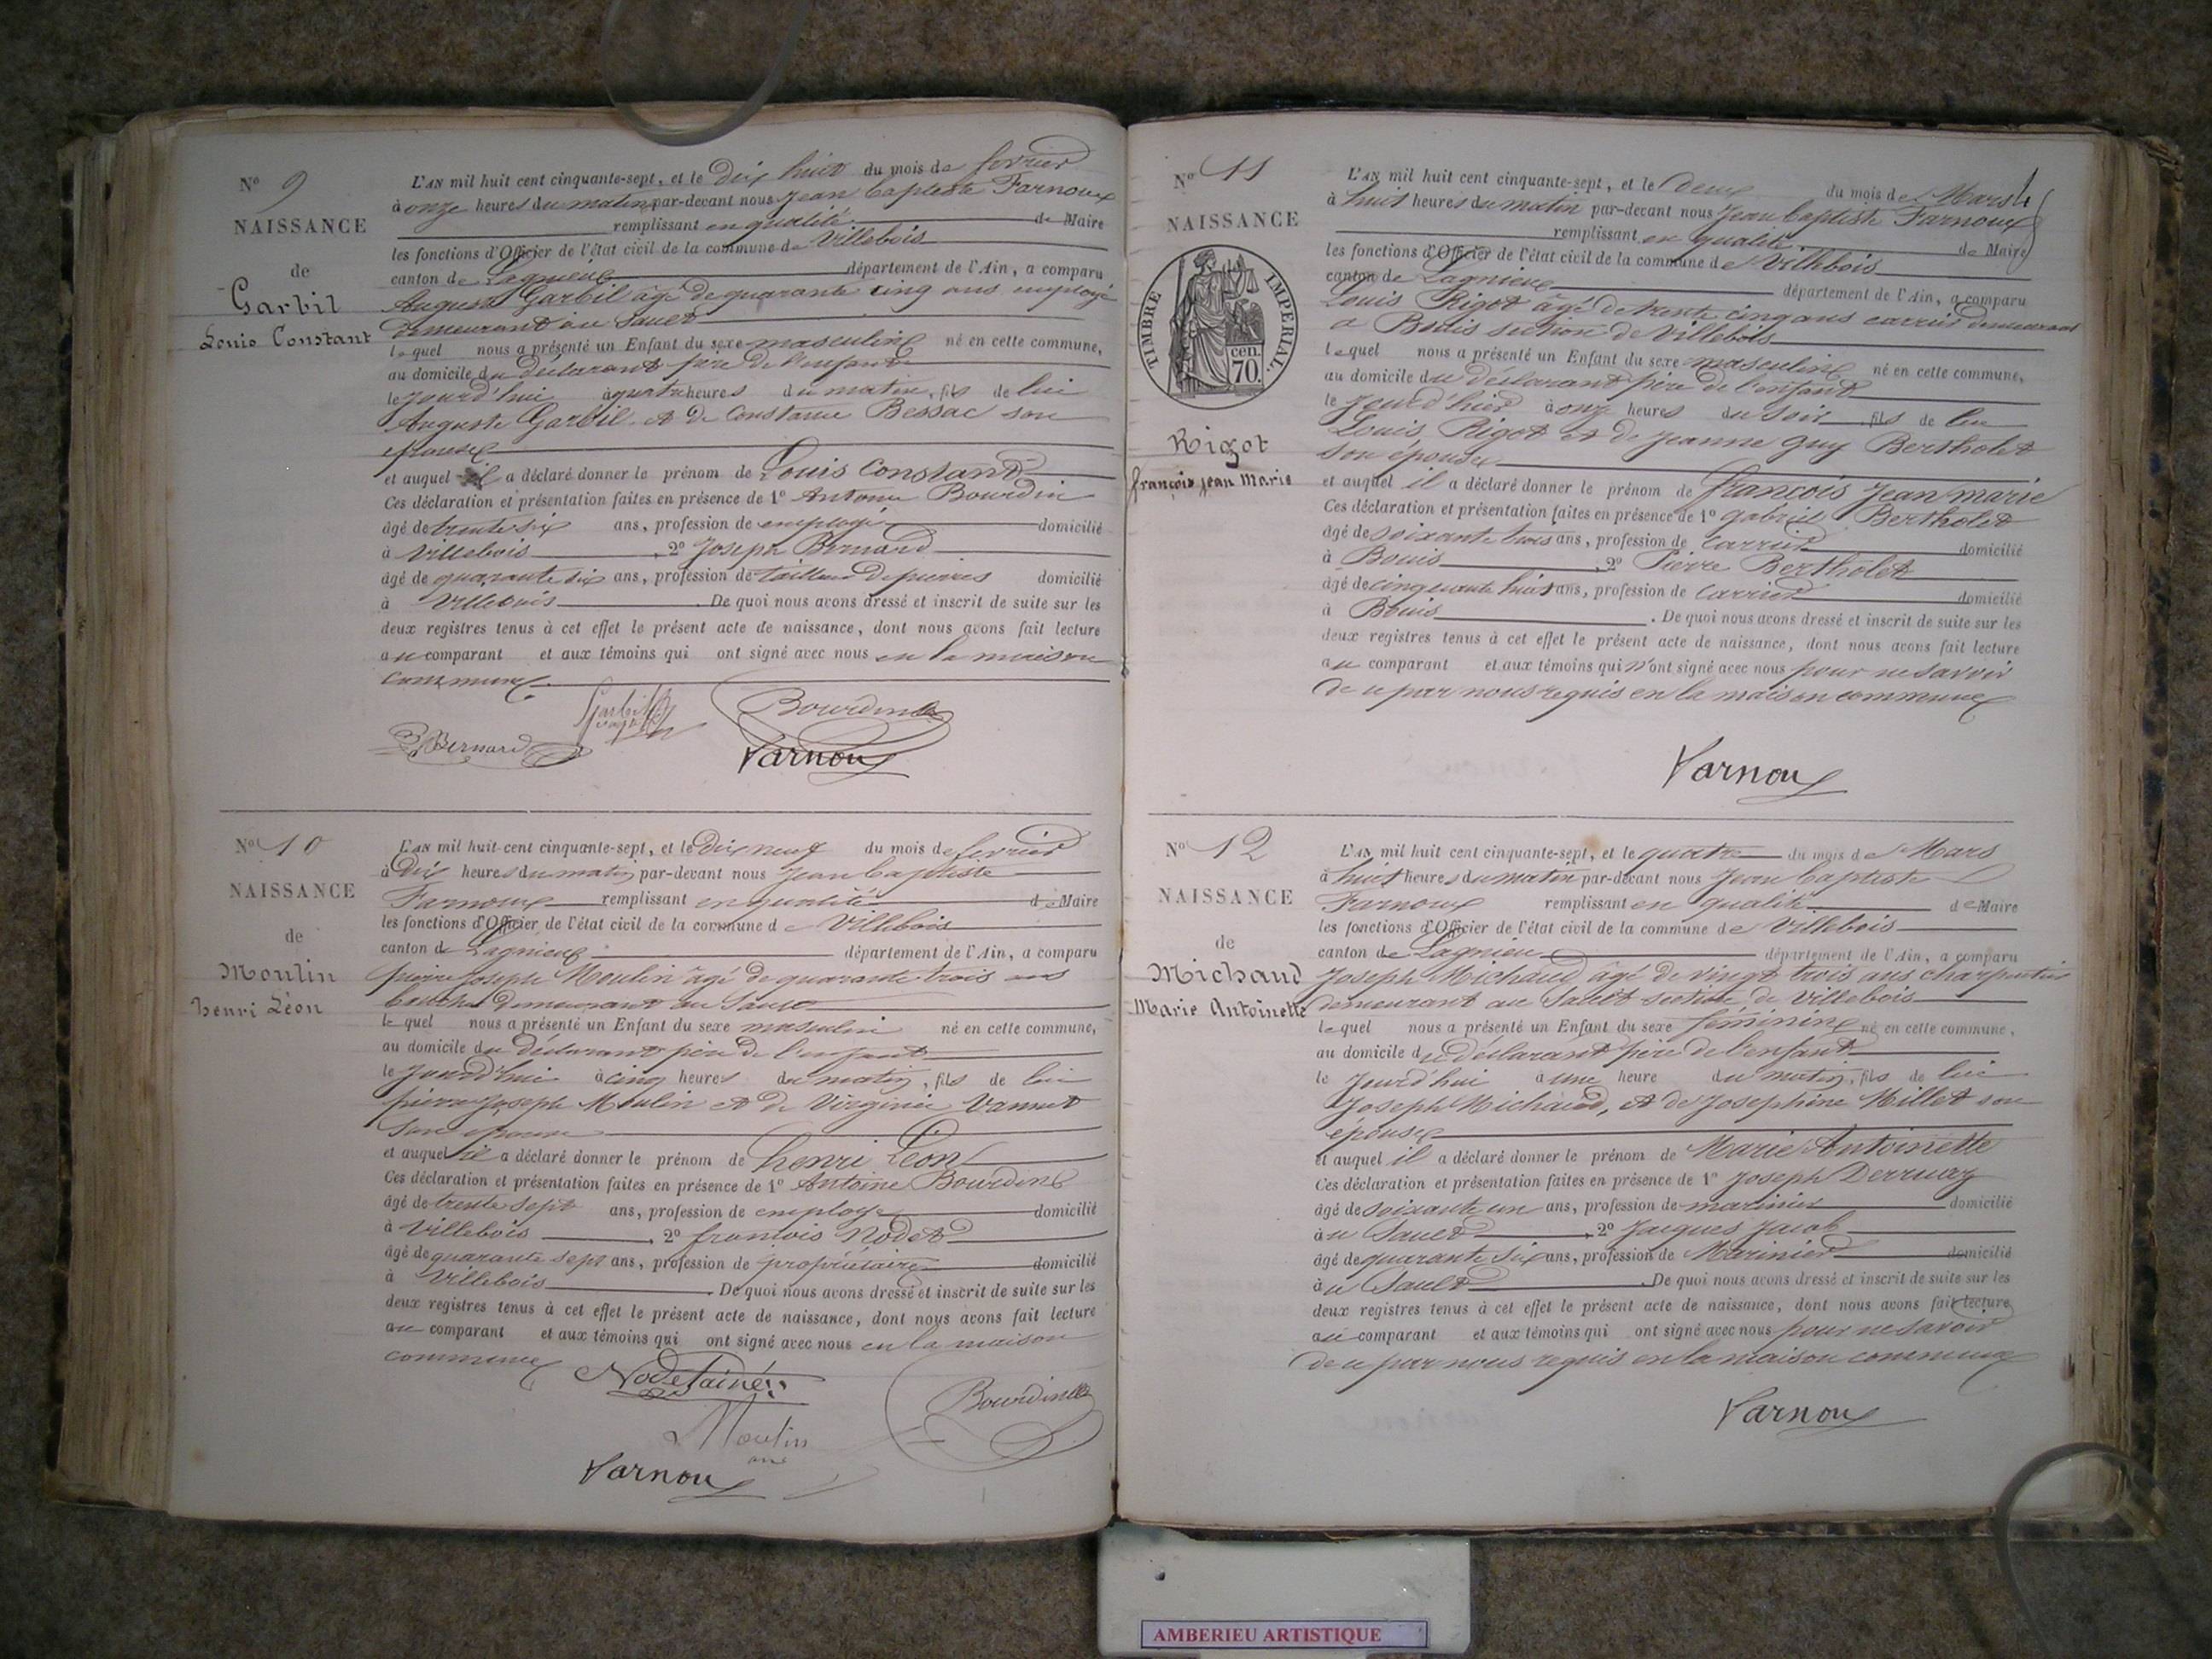 N° 9
NAISSANCE
de
Garbil
Louis Constant
L'AN mil huit cent cinquante-sept, et le Dix huit du mois de fevrier
à onze heures du matin par-devant nous Jean Baptiste Farnoux
remplissant en qualité de Maire
les fonctions d'Officier de l'état civil de la commune de Villebois
canton de Lagnieu département de l'Ain, a comparu
Auguste Garbil âgé de quarante cinq ans employé
demeurant au Sault
lequel nous a présenté un Enfant du sexe masculin né en cette commune,
au domicile du déclarant père de l'enfant
le jourd'hui à quatre heures du matin, fils de lui
Auguste Garbil et de Constance Bessac son
épouse
et auquel il a déclaré donner le prénom de Louis Constant
Ces déclaration et présentation faites en présence de 1° Antoine Bourdin
âgé de trente six ans, profession de employé domicilié
à Villebois, 2° Joseph Bernard
âgé de quarante six ans, profession de tailleur de pierres domicilié
à Villebois. De quoi nous avons dressé et inscrit de suite sur les
deux registres tenus à cet effet le présent acte de naissance, dont nous avons fait lecture
au comparant et aux témoins qui ont signé avec nous en la maison
commune.
Garbil
Bourdin
Bernard
Farnoux
N° 10
NAISSANCE
de
Moulin
henri Léon
L'AN mil huit cent cinquante-sept, et le Dix neuf du mois de fevrier
à Dix heures du matin par-devant nous Jean Baptiste
Farnoux remplissant en qualité de Maire
les fonctions d'Officier de l'état civil de la commune de Villebois
canton de Lagnieu département de l'Ain, a comparu
pierre Joseph Moulin âgé de quarante trois ans
boucher demeurant au Sault
lequel nous a présenté un Enfant du sexe masculin né en cette commune,
au domicile du déclarant père de l'enfant
le jourd'hui à cinq heures du matin, fils de lui
pierre Joseph Moulin et de Virginie Vannet
son épouse
et auquel il a déclaré donner le prénom de henri Léon
Ces déclaration et présentation faites en présence de 1° Antoine Bourdin
âgé de trente sept ans, profession de employé domicilié
à Villebois, 2° francois Nodet
âgé de quarante sept ans, profession de propriétaire domicilié
à Villebois. De quoi nous avons dressé et inscrit de suite sur les
deux registres tenus à cet effet le présent acte de naissance, dont nous avons fait lecture
au comparant et aux témoins qui ont signé avec nous en la maison
commune
Nodet ainé
Bourdin
Moulin
Farnoux
N° 11
NAISSANCE
TIMBRE IMPERIAL.
cen.
70.
Rigot
françois jean Marie
L'AN mil huit cent cinquante-sept, et le deux du mois de Mars
à huit heures du matin par-devant nous Jean Baptiste Farnoux
remplissant en qualité de Maire
les fonctions d'Officier de l'état civil de la commune de Villebois
canton de Lagnieu département de l'Ain, a comparu
Louis Rigot âgé de trente cinq ans carrier demeurant
a Bouis section de Villebois
lequel nous a présenté un Enfant du sexe masculin né en cette commune,
au domicile du déclarant père de l'enfant
le jour d'hier à onze heures du soir fils de lui
Louis Rigot et de Jeanne Guy Bertholet
son épouse
et auquel il a déclaré donner le prénom de françois Jean marie
Ces déclaration et présentation faites en présence de 1° gabriel Bertholet
âgé de soixante trois ans, profession de carrier domicilié
à Bouis, 2° Pierre Bertholet
âgé de cinquante huit ans, profession de Carrier domicilié
à Bouis. De quoi nous avons dressé et inscrit de suite sur les
deux registres tenus à cet effet le présent acte de naissance, dont nous avons fait lecture
au comparant et aux témoins qui n'ont signé avec nous pour ne savoir
de ce par nous requis en la maison commune
Farnoux
N° 12
NAISSANCE
de
Michaud
Marie Antoinette
L'AN mil huit cent cinquante-sept, et le quatre du mois de Mars
à huit heures du matin par-devant nous Jean Baptiste
Farnoux remplissant en qualité de Maire
les fonctions d'Officier de l'état civil de la commune de Villebois
canton de Lagnieu département de l'Ain, a comparu
Joseph Michaud âgé de vingt trois ans charpentier
demeurant au Sault section de Villebois
lequel nous a présenté un Enfant du sexe féminin né en cette commune,
au domicile du déclarant père de l'enfant
le jourd'hui à une heure du matin, fils de lui
Joseph Michaud, et de Josephine Millet son
épouse
et auquel il a déclaré donner le prénom de Marie Antoinette
Ces déclaration et présentation faites en présence de 1° Joseph Derruaz
âgé de soixante un ans, profession de marinier domicilié
au Sault, 2° Jacques Jacob
âgé de quarante six ans, profession de Marinier domicilié
au Sault. De quoi nous avons dressé et inscrit de suite sur les
deux registres tenus à cet effet le présent acte de naissance, dont nous avons fait lecture
au comparant et aux témoins qui ont signé avec nous pour ne savoir
de ce par nous requis en la maison commune
Farnoux
AMBERIEU ARTISTIQUE